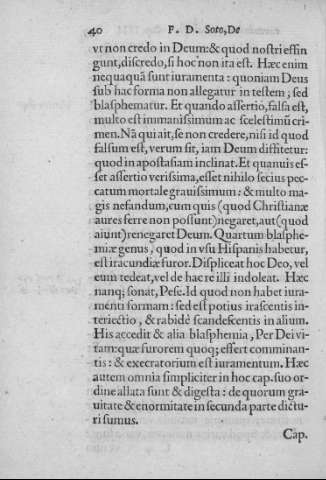 40 F. D. Soto, De
vt non credo in Deum: & quod nostri effin
gunt, discredo, si hoc non ita est. Hæc enim
nequaquã sunt iuramenta: quoniam Deus
sub hac forma non allegatur in testem, sed
blasphematur. Et quando assertio, falsa est,
multo est immanissimum ac scelestimũ cri-
men. Nã qui ait, se non credere, nisi id quod
falsum est, verum sit, iam Deum diffitetur:
quod in apostasiam inclinat. Et quanuis es-
set assertio verissima, esset nihilo secius pec-
catum mortale grauissimum: & multo ma-
gis nefandum, cum quis (quod Christianæ
aures ferre non possunt) negaret, aut (quod
aiunt) renegaret Deum. Quartum blasphe-
miæ genus, quod in vsu Hispanis habetur,
est iracundiæ furor. Displiceat hoc Deo, vel
eum tedeat, vel de hac re illi indoleat. Hæc
nanq; sonat, Pese. Id quod non habet iura-
menti formam: sed est potius irascentis in-
teriectio, & rabidè scandescentis in alium.
His accedit & alia blasphemia, Per Dei vi-
tam: quæ furorem quoq; effert comminan-
tis: & execratorium est iuramentum. Hæc
autem omnia simpliciter in hoc cap. suo or-
dine allata sunt & digesta: de quorum gra-
uitate & enormitate in secunda parte dictu-
ri sumus.
Cap.